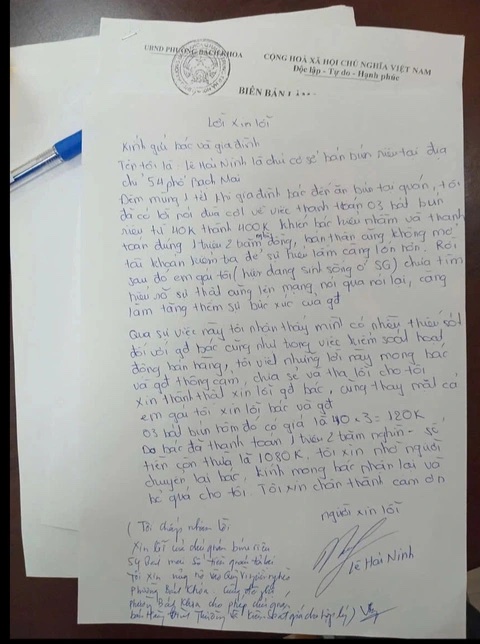 UBND PHƯỜNG BÁCH KHOA
CỘNG HOÀ XÃ HỘI CHỦ NGHĨA VIỆT NAM
Độc lập - Tự do - Hạnh phúc
BIÊN BẢN
Lời xin lỗi
Kính gửi bác và gia đình
Tên tôi là: Lê Hải Ninh là chủ cơ sở bán bún riêu tại địa
chỉ 54 phố Bạch Mai
Đêm mùng 1 tết khi gia đình bác đến ăn bún tại quán, tôi
đã có lời nói đùa cợt về việc thanh toán 03 bát bún
riêu từ 40K thành 400K khiến bác hiểu nhầm và thanh
toán đúng 1 triệu 2 trăm nghìn đồng, bản thân cũng không mở
tài khoản kiểm tra để sự hiểu lầm càng lớn hơn. Rồi
sau đó em gái tôi (hiện đang sinh sống ở SG) chưa tìm
hiểu rõ sự thật cũng lên mạng nói qua nói lại, càng
làm tăng thêm sự bức xúc của gđ
Qua sự việc này tôi nhận thấy mình có nhiều thiếu sót
đối với gđ bác cũng như trong việc kiểm soát hoạt
động bán hàng, tôi viết những lời này mong bác
và gđ thông cảm, chia sẻ và tha lỗi cho tôi
Xin thành thật xin lỗi gđ bác, cũng thay mặt cả
em gái tôi xin lỗi bác và gđ
03 bát bún hôm đó có giá là 40 x 3 = 120K
Do bác đã thanh toán 1 triệu 2 trăm nghìn - số
tiền còn thừa là 1080K, tôi xin nhờ người
chuyển lại bác, kính mong bác nhận lại và
bỏ quá cho tôi. Tôi xin chân thành cảm ơn
người xin lỗi
Lê Hải Ninh
( Tôi chấp nhận lời
Xin lỗi của chủ quán bún riêu
54 Bạch mai Số tiền quán trả lại
Tôi xin ủng hộ vào Quỹ vì người nghèo
phường Bách Khoa,
phường Bách Khoa cho phép chủ quán
bán Hàng )